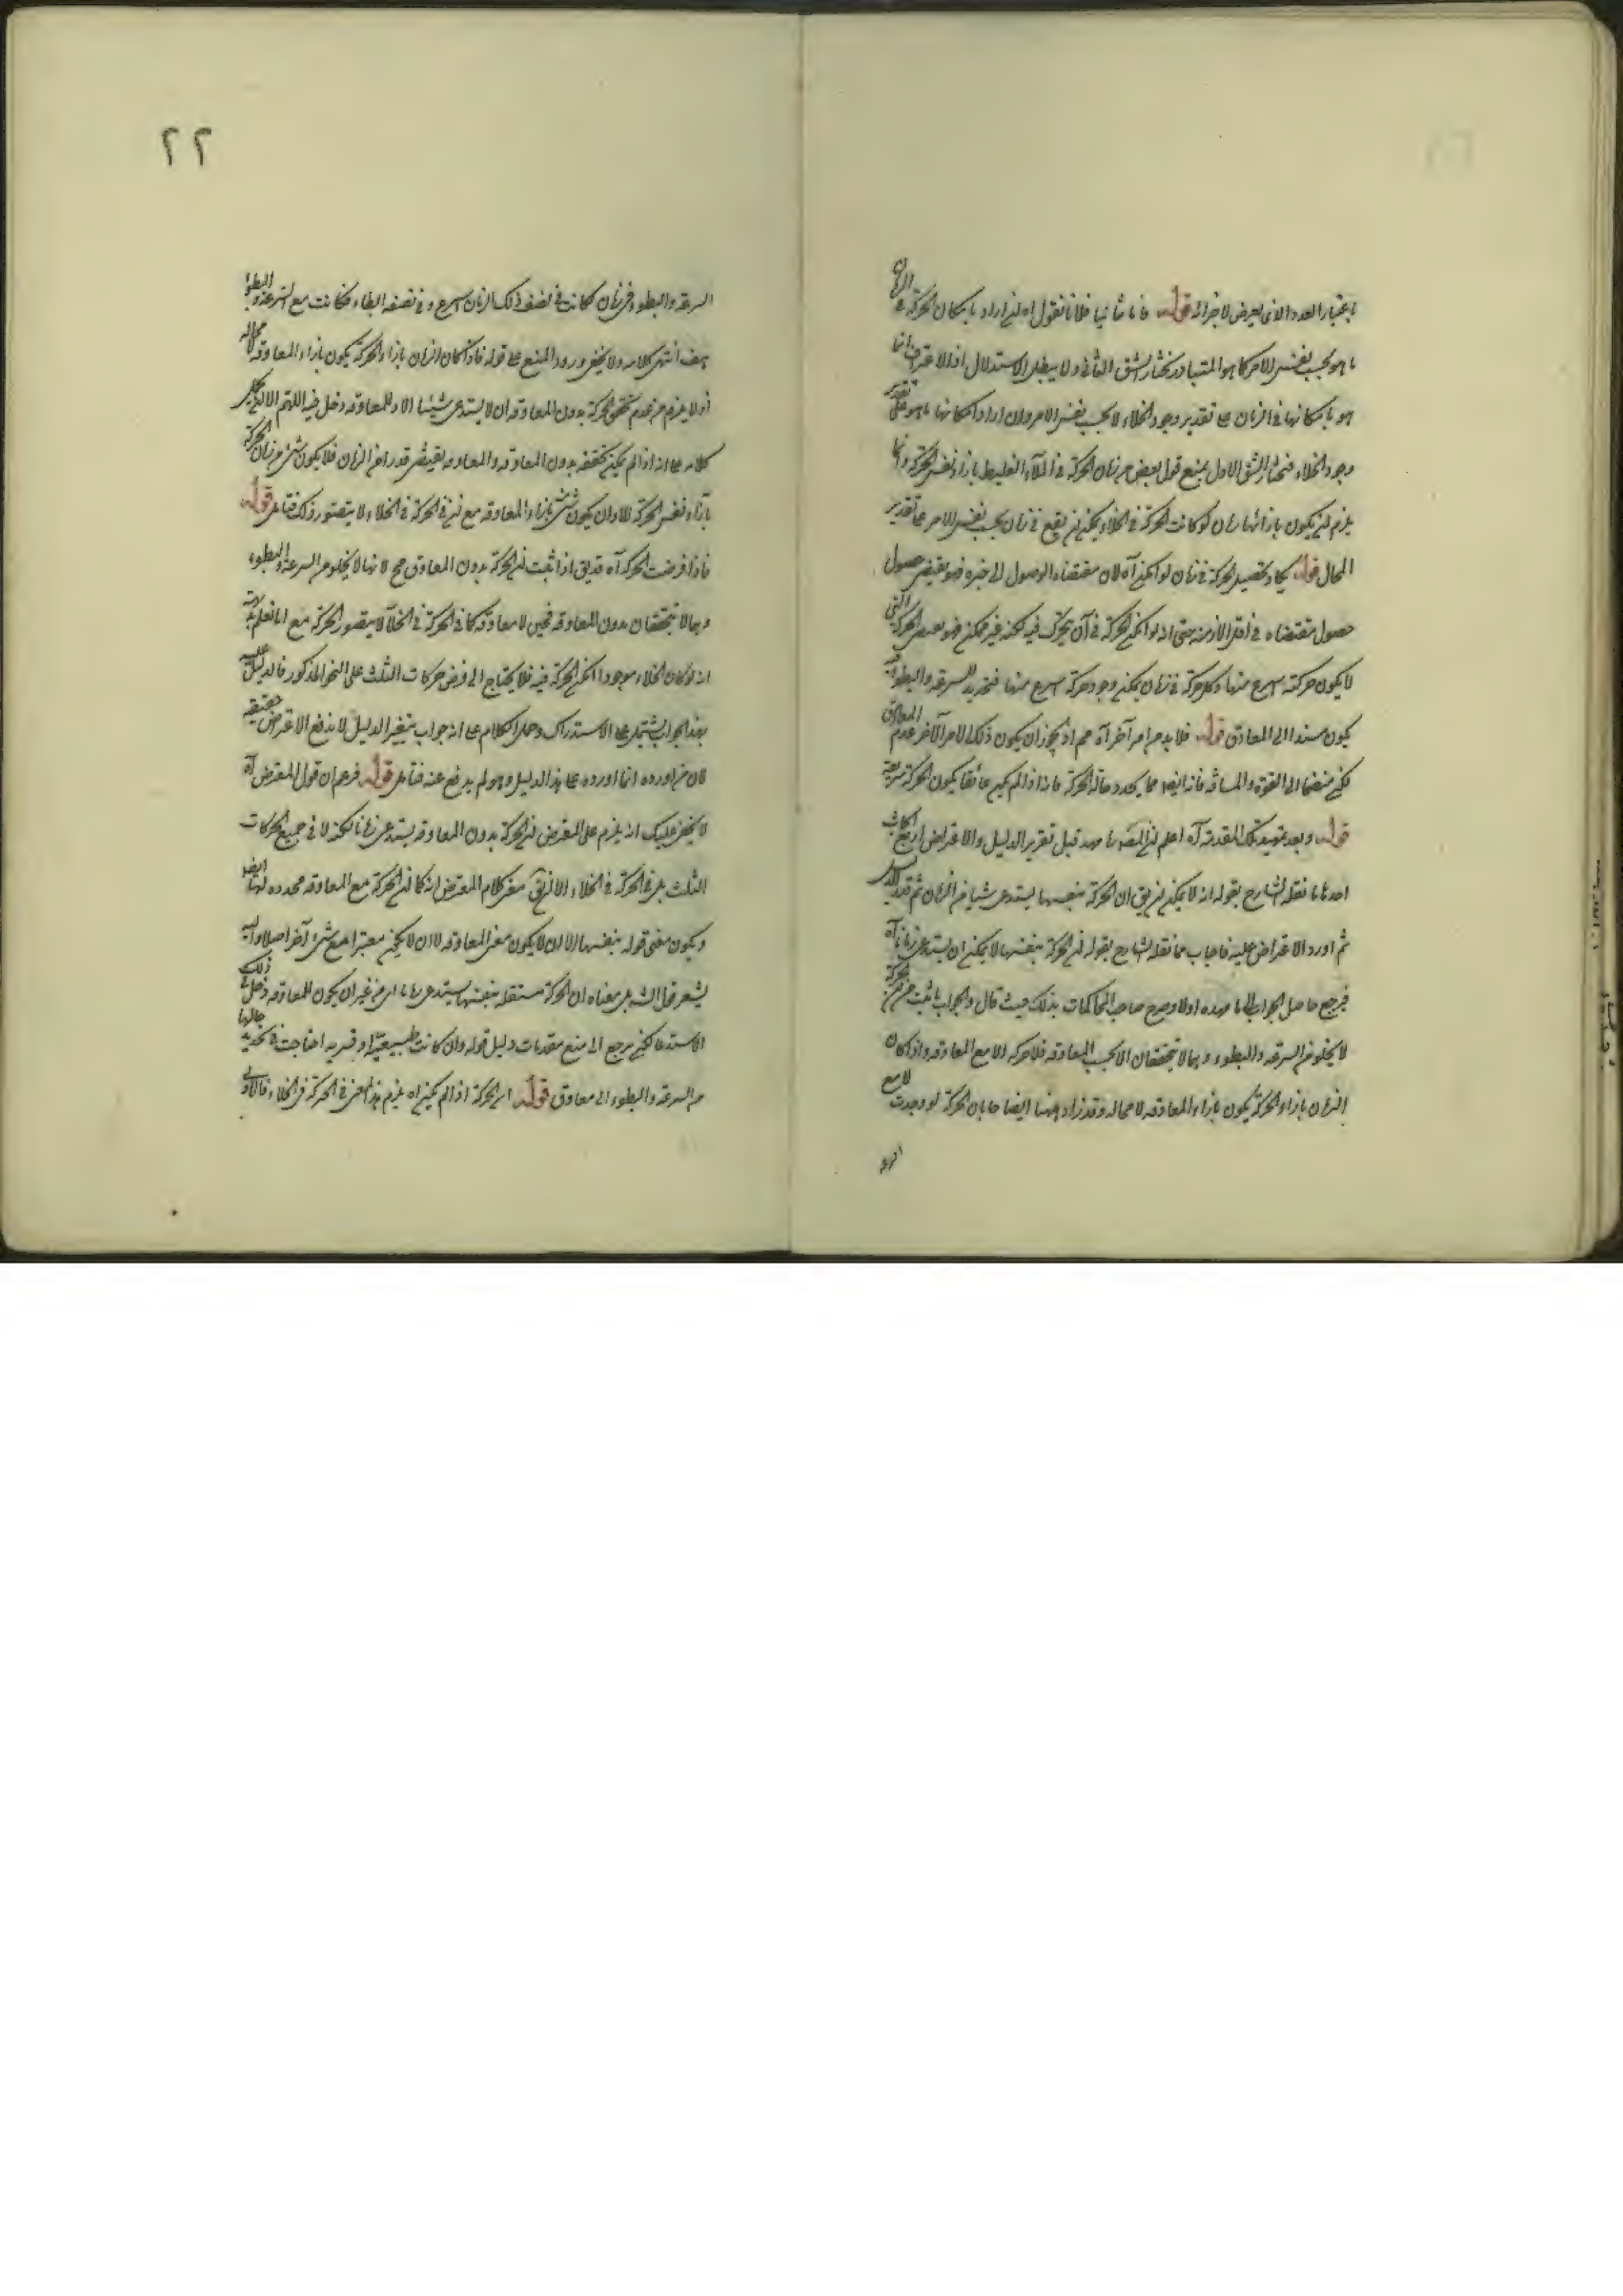 باعتبار العدد الذى يعرض لاجزائه قوله واما ثانيا فلانا نقول اه ان اراد بامكان الحركة فى الزمان
ما هو بحسب نفس الامر كما هو المتبادر نختار الشق الثانى ولا يبطل الاستدلال اذ الاعتراف انما
هو بامكانها فى الزمان على تقدير وجود الخلاء لا بحسب نفس الامر وان اراد امكانها ما هو على تقدير
وجود الخلاء فنختار الشق الاول بمنع قوله بعض من زمان الحركة فى الملاء الغليظ بازاء نفس الحركة وانما
يلزم ان يكون بازائها زمان لو كانت الحركة فى الخلاء يمكن ان يقع فى زمان بحسب نفس الامر على تقدير
المحال قوله لو امكن آه لان مقتضاه الوصول الى حيزه فهو يقتضى حصول
حصول مقتضاه فى اقل الازمنة حتى انه لو امكن الحركة فى آن يتحرك فيه لكنه غير ممكن فهو يقتضى الحركة التى
لا يكون حركة اسرع منها وكل حركة فى زمان يمكن وجود حركة اسرع منها فتحديد السرعة والبطوء
يكون مستندا الى المعاوق قوله فلا بد من امر آخر آه اذ يجوز ان يكون ذلك الامر الآخر عدم المعاوق
لكن منضما الى القوة والمسافة فانه ايضا مما يحدد حال الحركة فانه اذا لم يكن عائقا يكون الحركة سريعة
قوله وبعد تمهيد تلك المقدمة آه اعلم ان المصـ مهد قبل تقرير الدليل والاعتراض اربع ابحاث
احدها ما نقله الشارح بقوله انه لا يمكن ان يق ان الحركة بنفسها يستدعى شيئا من الزمان ثم قرر الدليل
ثم اورد الاعتراض عليه فاجاب بما نقله الشارح بقوله ان الحركة بنفسها لا يمكن ان يستدعى زمانا آه
فرجع حاصل الجواب الى ما مهده اولا وصرح صاحب المحاكمات بذلك حيث قال والجواب ما ثبت من ان الحركة
لا يخلو من السرعة والبطوء وهما لا يتحققان الا بحسب المعاوقة فلا حركة الا مع المعاوقة واذا كان
الزمان بازاء الحركة يكون بازاء المعاوقة لا محالة وقد زاد ههنا ايضا بان الحركة لو وجدت لا مع
السرعة
٢٢
السرعة والبطوء فى زمان لكانت فى نصف ذلك الزمان اسرع وفى ضعفه ابطاء فكانت مع السرعة والبطوء
هف انتهى كلامه ولا يخفى ورود المنع على قوله فاذا كان الزمان بازاء الحركة يكون بازاء المعاوقة لا محالة
اذ لا يلزم من عدم تحقق الحركة بدون المعاوقة ان لا يستدعى شيئا الا وللمعاوقة دخل فيه اللهم الا ان يحمل
كلامه على انه اذا لم يمكن تحققه بدون المعاوقة والمعاوقة يقتضى قدرا من الزمان فلا يكون شئ من زمان الحركة
بازاء نفس الحركة الا وان يكون شئ بازاء المعاوقة مع ان فى الحركة فى الخلاء لا يتصور ذلك فتامل قوله
فاذا فرضت الحركة آه قد يق اذا ثبت ان الحركة بدون المعاوق مح لانها لا يخلو من السرعة والبطوء
وهما لا يتحققان بدون المعاوقة فحين لا معاوقة كما فى الحركة فى الخلاء لا يتصور الحركة مع انا نعلم بديهة
انه لو كان الخلاء موجودا امكن الحركة فيه فلا يحتاج الى فرض حركات الثلث على النحو المذكور فالدليل عليه
بهذا الجواب يشتمل على الاستدراك وحمل الكلام على انه جواب بتغيير الدليل لا بدفع الاعتراض
لان من اورده انما اورده على هذا الدليل وهو لم يدفع عنه فتامل قوله فزعم ان قول المعترض آه
لا يخفى عليك انه يلزم على المعترض ان الحركة بدون المعاوقة يستدعى زمانا لكنه لا فى جميع الحركات
الثلث بل فى الحركة فى الخلاء الا ان يق معنى كلام المعترض انه كما ان الحركة مع المعاوقة محدودة لها ايضا
ويكون معنى قوله بنفسها الا ان لا يكون معنى المعاوقة لا ان لا يكون معتبرا مع شئ آخر اصلا واليه
يشعر قول الشـ بل معناه ان الحركة مستقلة بنفسها يستدعى زمانا اى من غير ان يكون للمعاوقة دخل فى ذلك
الاستدعاء لكن يرجع الى منع مقدمات دليل قوله وان كانت طبيعية او قسرية احتاجت فى تحديد حالها
من السرعة والبطوء الى معاوق قوله ان الحركة اذا لم يكن اه يلزم هذا المعنى فى الحركة فى الخلاء فالاولى